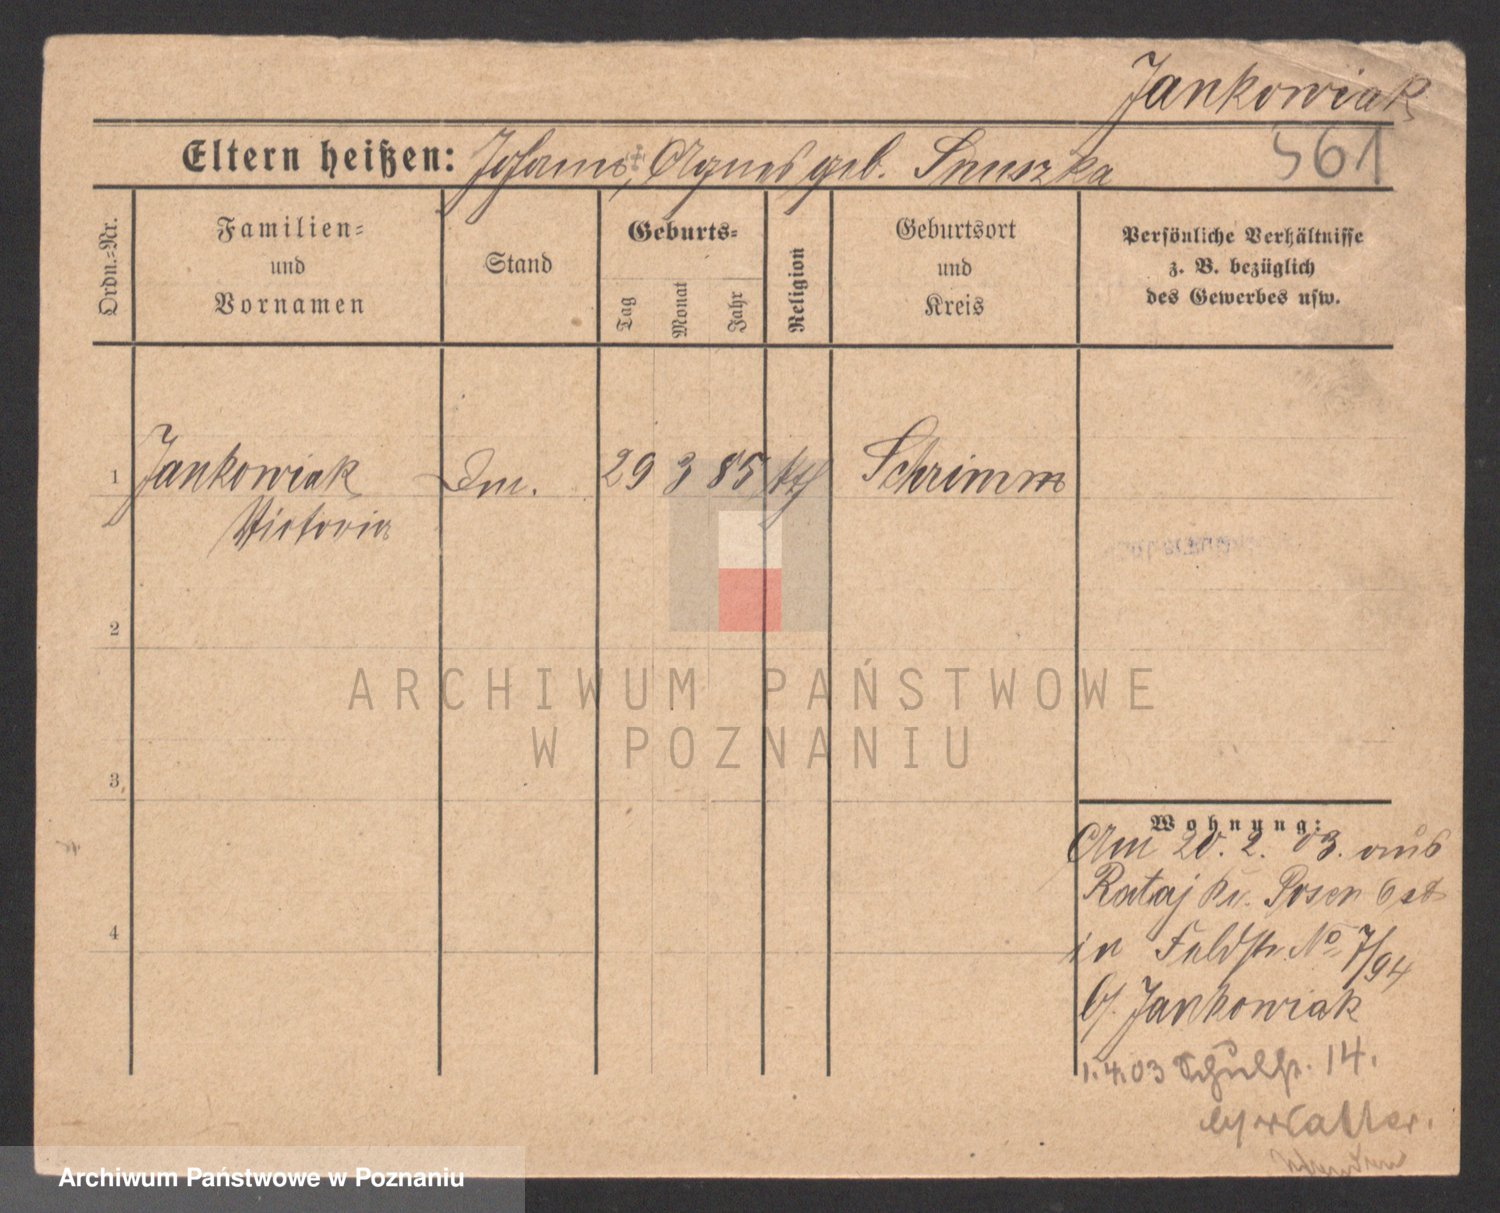 Jankowiak
561
Eltern heißen: Johann ‡, Agnes geb. Snuszka
Ordn.-Nr.
Familien=
und
Vornamen
Stand
Geburts=
Tag
Monat
Jahr
Religion
Geburtsort
und
Kreis
Persönliche Verhältnisse
z. B. bezüglich
des Gewerbes usw.
1 Jankowiak Dm. 29 3 85 kth Schrimm
Victoria
2
3
4
Wohnung:
Am 20. 2. 03. aus
Rataj Kr. Posen Ost
in Feldstr. No 7/94
b/. Jankowiak
1.4.03 Schulstr. 14.
ARCHIWUM PAŃSTWOWE
W POZNANIU
Archiwum Państwowe w Poznaniu